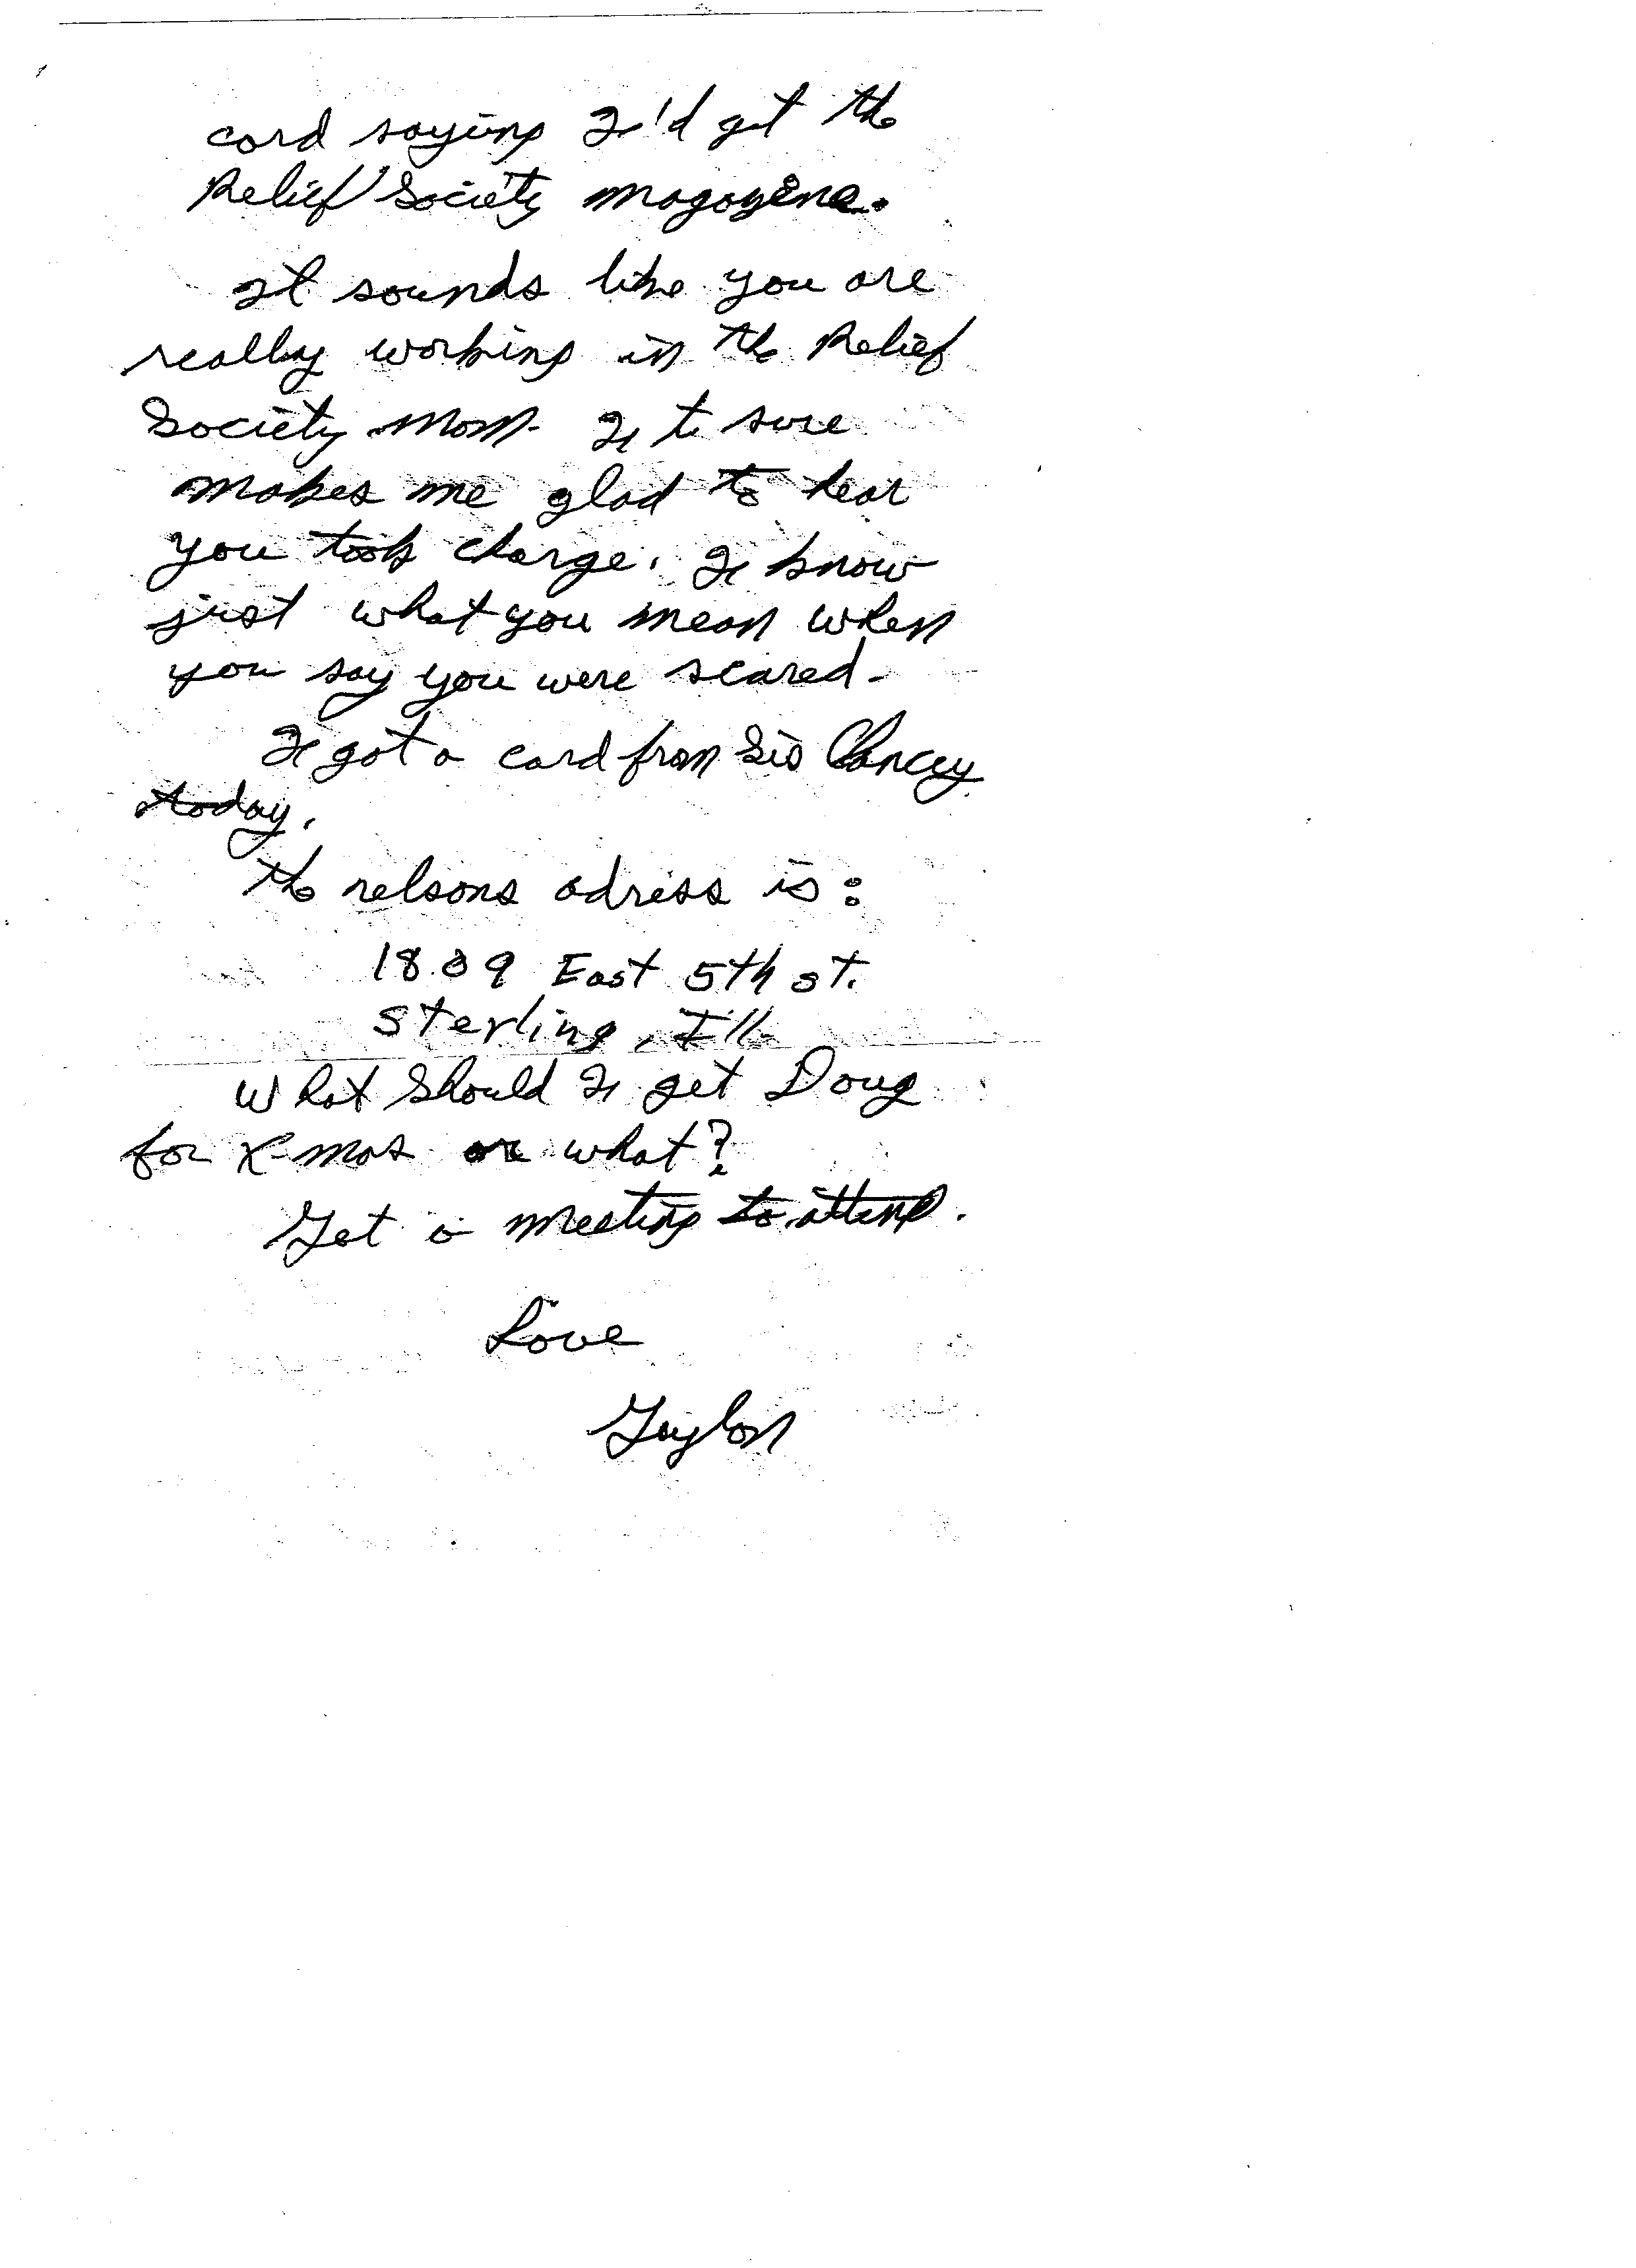 card saying I'd get the
Relief Society magazine.
It sounds like you are
really working in the Relief
Society Mom. It sure
makes me glad to hear
you took charge. I know
just what you mean when
you say you were scared.
I got a card from Sis Chancey
today.
The nelsons adress is:
1809 East 5th st.
Sterling, Ill.
What should I get Doug
for X-mas or what?
Got a meeting to attend.
Love
Gaylon